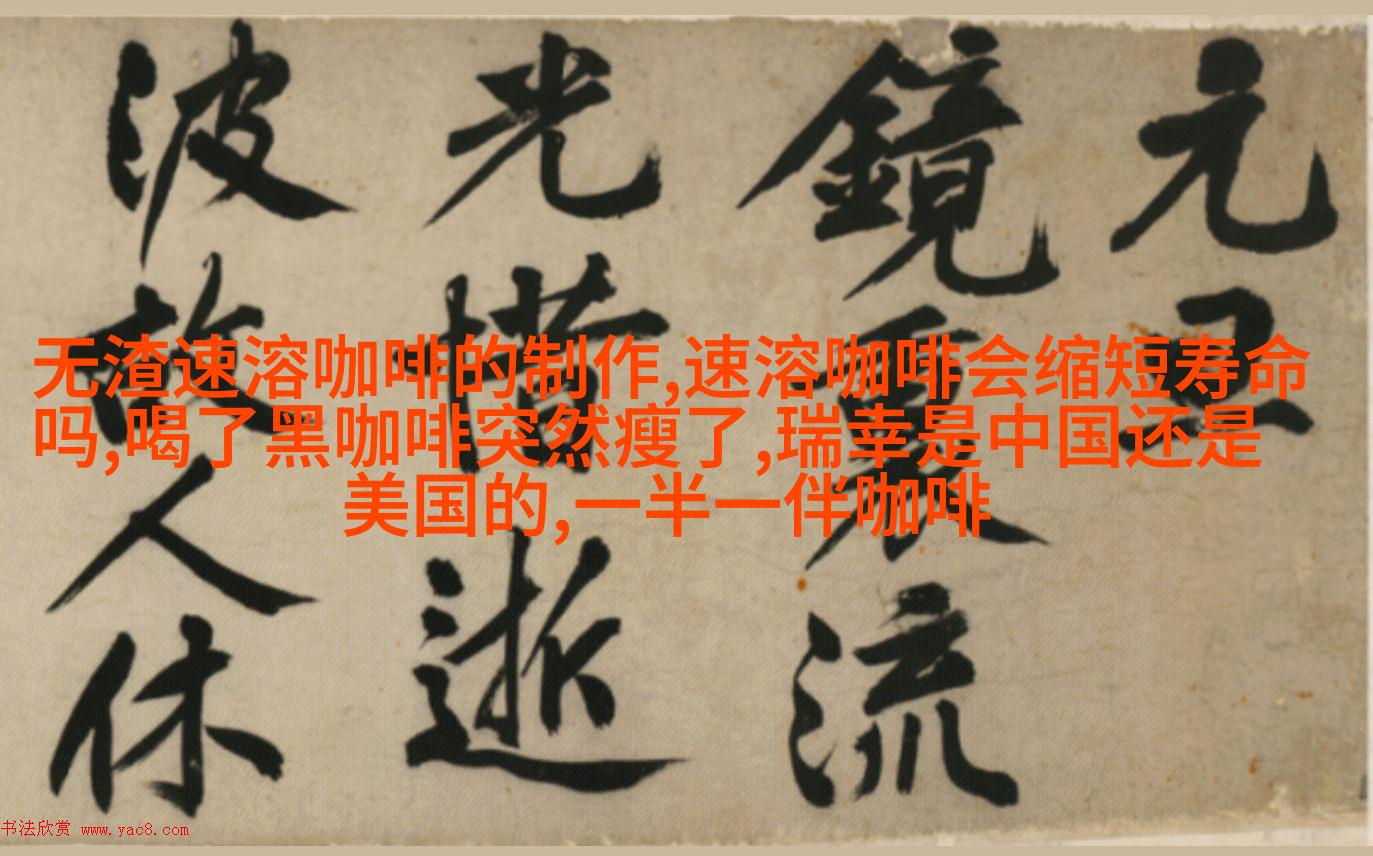 无渣速溶咖啡的制作,速溶咖啡会缩短寿命
吗,喝了黑咖啡突然瘦了,瑞幸是中国还是
美国的,一半一伴咖啡
元
鏡裏流
光惜逝
波故人休
书法欣赏 www.yac8.com